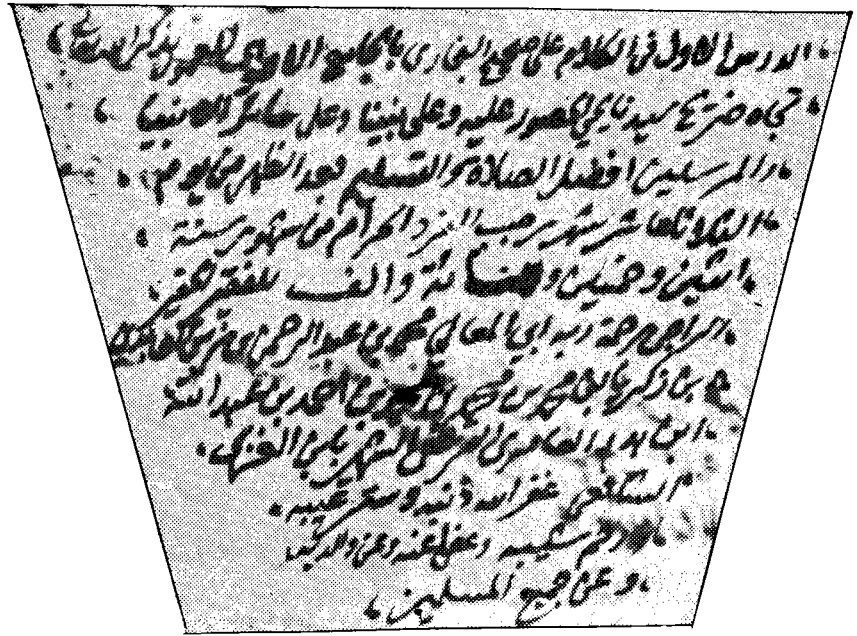 الدرس الاول في الكلام على صحيح البخاري بالجامع الاموي المعمور بذكر الله تعالى
تجاه ضريح سيدنا يحيى الحصور عليه وعلى نبينا وعلى سائر الانبيا
والمرسلين افضل الصلاة والتسليم بعد الظهر من يوم
الثلاثا عاشر شهر رجب الفرد الحرام من شهور سنة
اثنين وخمسين ومائة والف للفقير الحقير
الراجي رحمة ربه ابي المعالي محمد بن عبد الرحمن بن
بن زكريا بن محمد بن محمد بن احمد بن عبد الله
ابن العامري الشهير بابن الغزي
الشافعي غفر الله ذنبه وستر عيبه
ورحم شيبه وعفى عنه وعن والديه
وعن جميع المسلمين